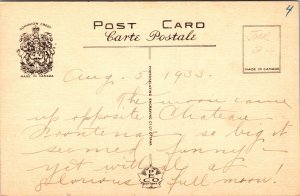 4
POST CARD
Carte Postale
DOMINION CREST
MADE IN CANADA
MADE IN CANADA
Aug. 5 1933.
The moon came
up opposite Chateau
Frontenac so big it
seemed funny
yet withal a
glorious full moon!